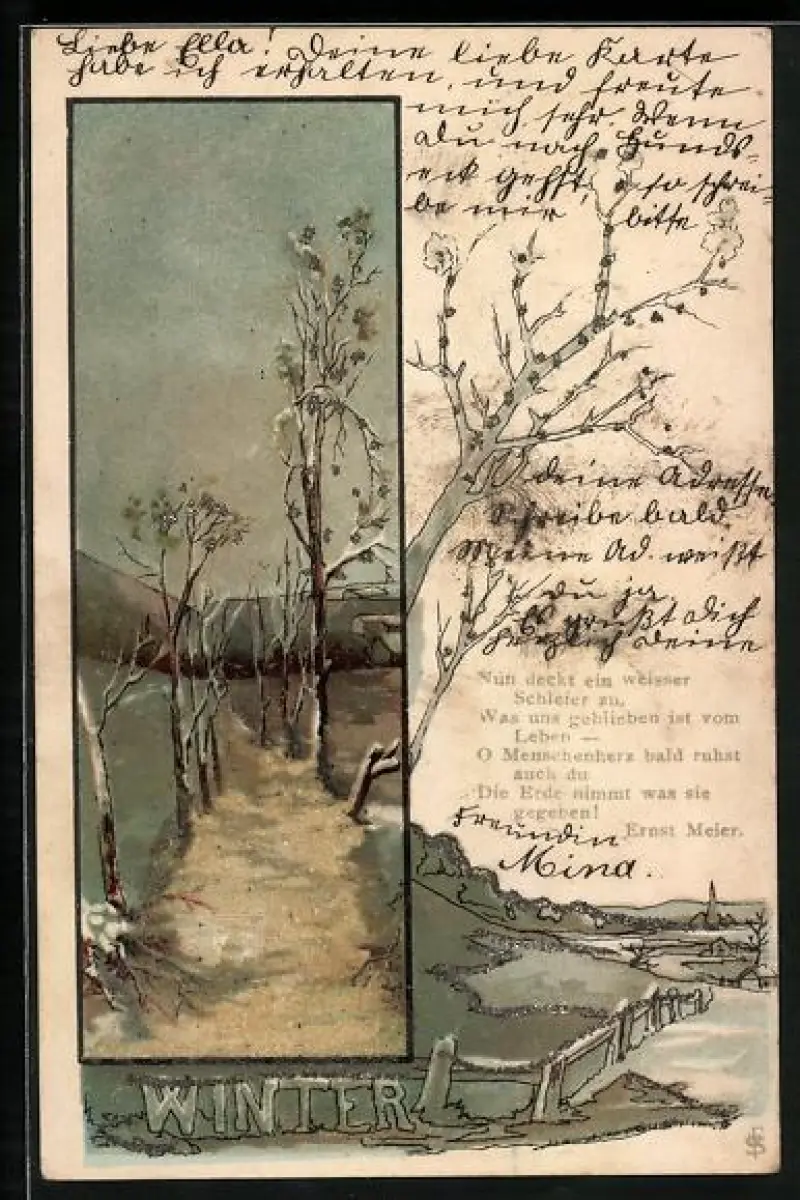 Liebe Ella! Deine liebe Karte
habe ich erhalten, und freute
mich sehr. Wenn
Du nach Hunds-
eck gehst, so schrei-
be mir bitte
deine Adresse
Schreibe bald.
Meine Ad. weißt
du ja.
Es grüßt Dich
herzlich deine
Nun deckt ein weisser
Schleier zu,
Was uns geblieben ist vom
Leben —
O Menschenherz bald ruhst
auch du
Die Erde nimmt was sie
gegeben!
Ernst Meier.
Freundin
Mina.
WINTER